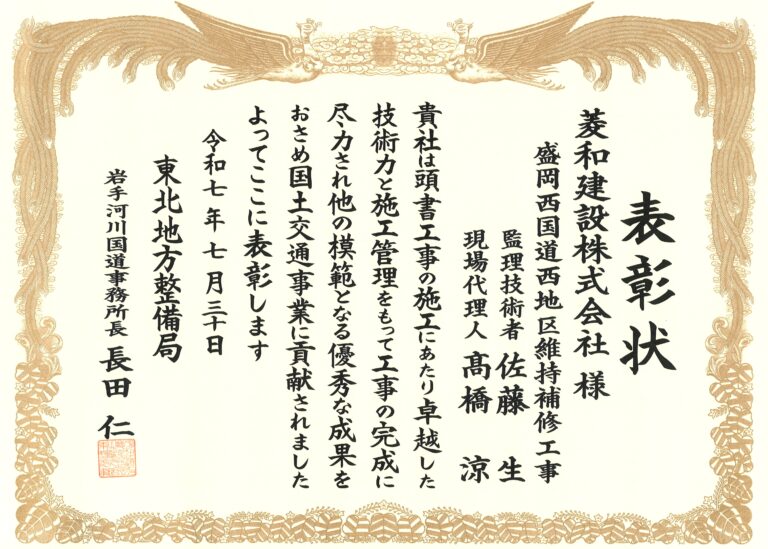 表彰状
菱和建設株式会社 様
盛岡西国道西地区維持補修工事
監理技術者 佐藤 生
現場代理人 髙橋 涼
貴社は頭書工事の施工にあたり卓越した
技術力と施工管理をもって工事の完成に
尽力され他の模範となる優秀な成果を
おさめ国土交通事業に貢献されました
よってここに表彰します
令和七年七月三十日
東北地方整備局
岩手河川国道事務所長 長田 仁